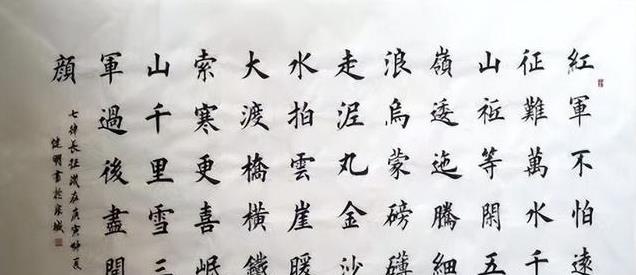 紅軍不怕遠
征難萬水千
山祗等閑五
嶺逶迤騰細
浪烏蒙磅礴
走泥丸金沙
水拍雲崖暖
大渡橋橫鐵
索寒更喜岷
山千里雪三
軍過後盡開
顔
七律長征歲在庚寅仲夏
健明書於城